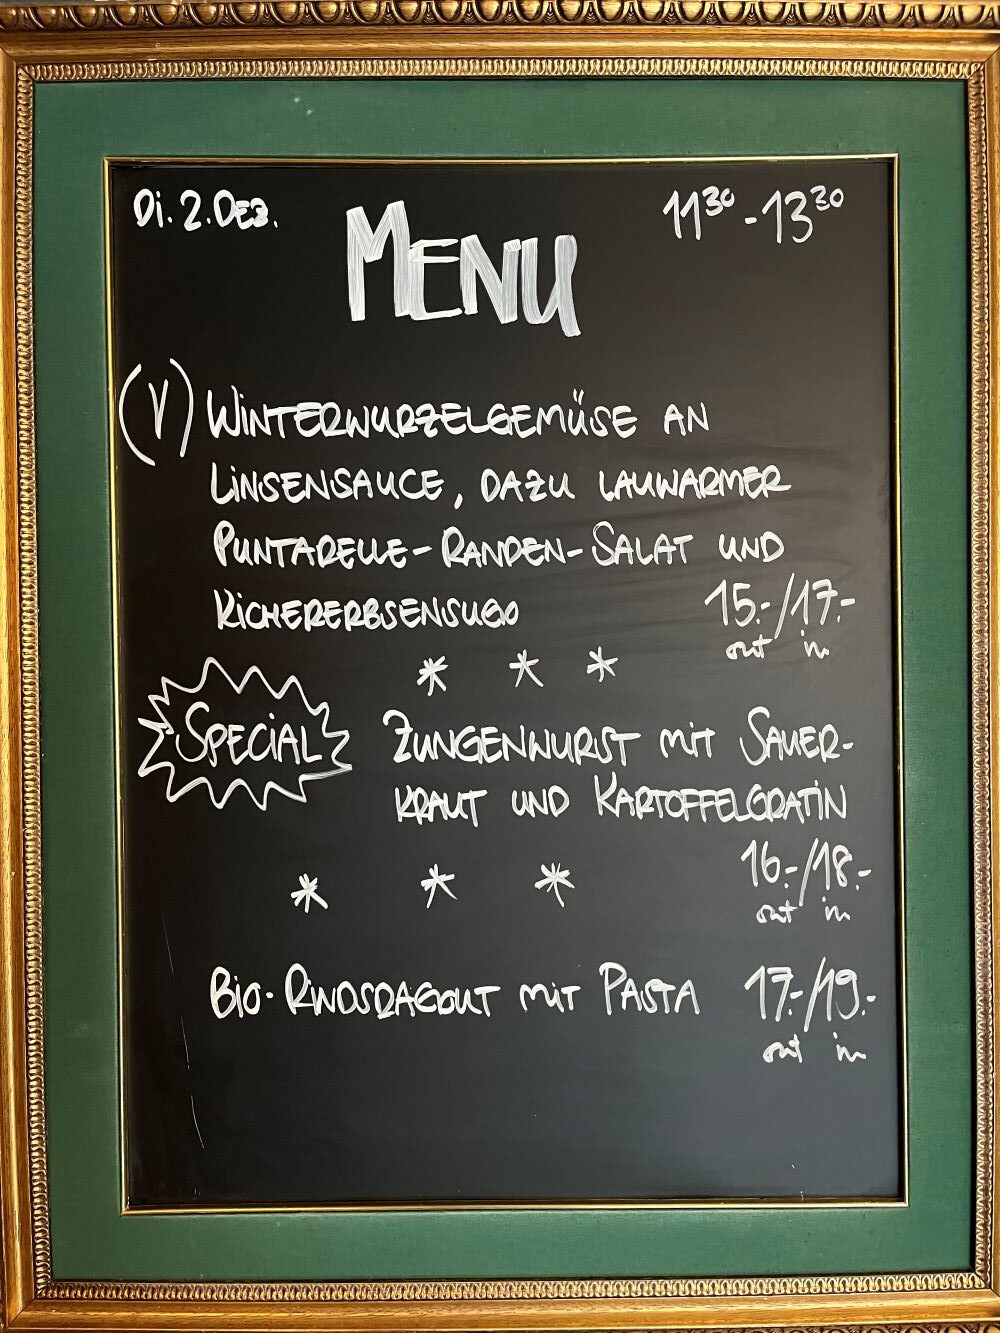 Di. 2. Dez.
11³⁰ - 13³⁰
MENU
(V) WINTERWURZELGEMÜSE AN
LINSENSAUCE, DAZU LAUWARMER
PUNTARELLE-RANDEN-SALAT UND
KICHERERBSENSUGO 15.-/17.-
out in
* * *
SPECIAL ZUNGENWURST MIT SAUER-
KRAUT UND KARTOFFELGRATIN
16.-/18.-
out in
* * *
BIO-RINDSRAGOUT MIT PASTA 17.-/19.-
out in